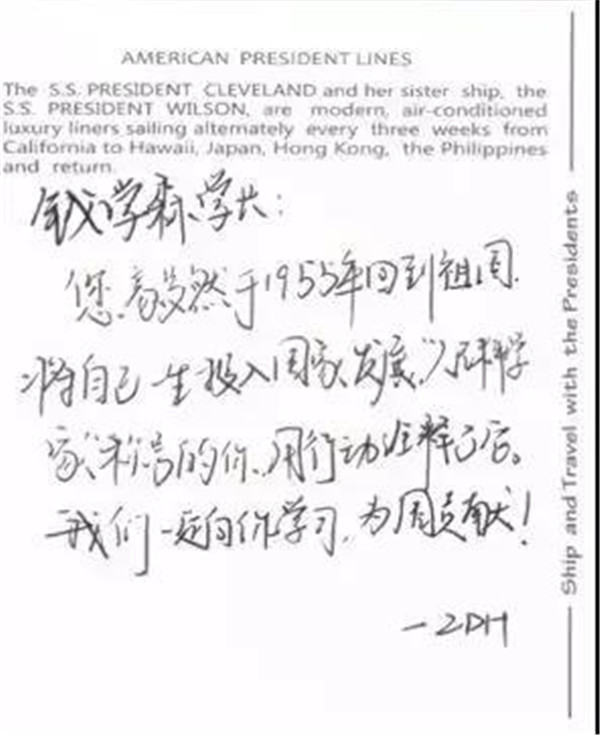 AMERICAN PRESIDENT LINES
The S.S. PRESIDENT CLEVELAND and her sister ship, the
S.S. PRESIDENT WILSON, are modern, air-conditioned
luxury liners sailing alternately every three weeks from
California to Hawaii, Japan, Hong Kong, the Philippines
and return.
钱学森学长:
您毅然于1955年回到祖国.
将自己一生投入国家发展,"人民科学
家"称号的你,用行动诠释了它。
我们一定向你学习,为国贡献!
—ZDH
Ship and Travel with the Presidents